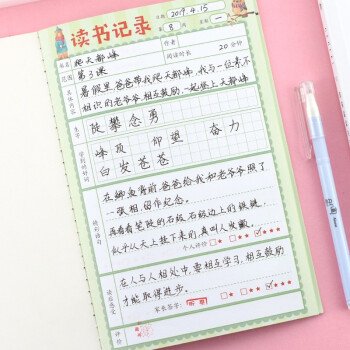 读书记录
日期：2019.4.15
第 8 周
星期：一
书名 爬天都峰
作者
范围 第3课
阅读时长 20分钟
具体内容
暑假里爸爸带我爬天都峰，我与一位素不
相识的老爷爷，相互鼓励，一起登上天都峰
生字
陡 攀 念 勇
峰顶 仰望 奋力
白发苍苍
精彩语句
在鲫鱼背前，爸爸给我和老爷爷照了
一张相，留作纪念。
再看看笔陡的石级，石级边上的铁链，
似乎从天上挂下来的，真叫人发颤。
个人评价
读后感受
在人与人相处中，要相互学习，相互鼓励
才能取得进步。
家长签字：
评价